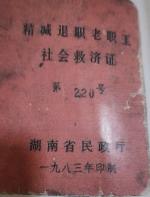 精减退职老职工
社会救济证
第 220 号
湖南省民政厅
一九八三年印制